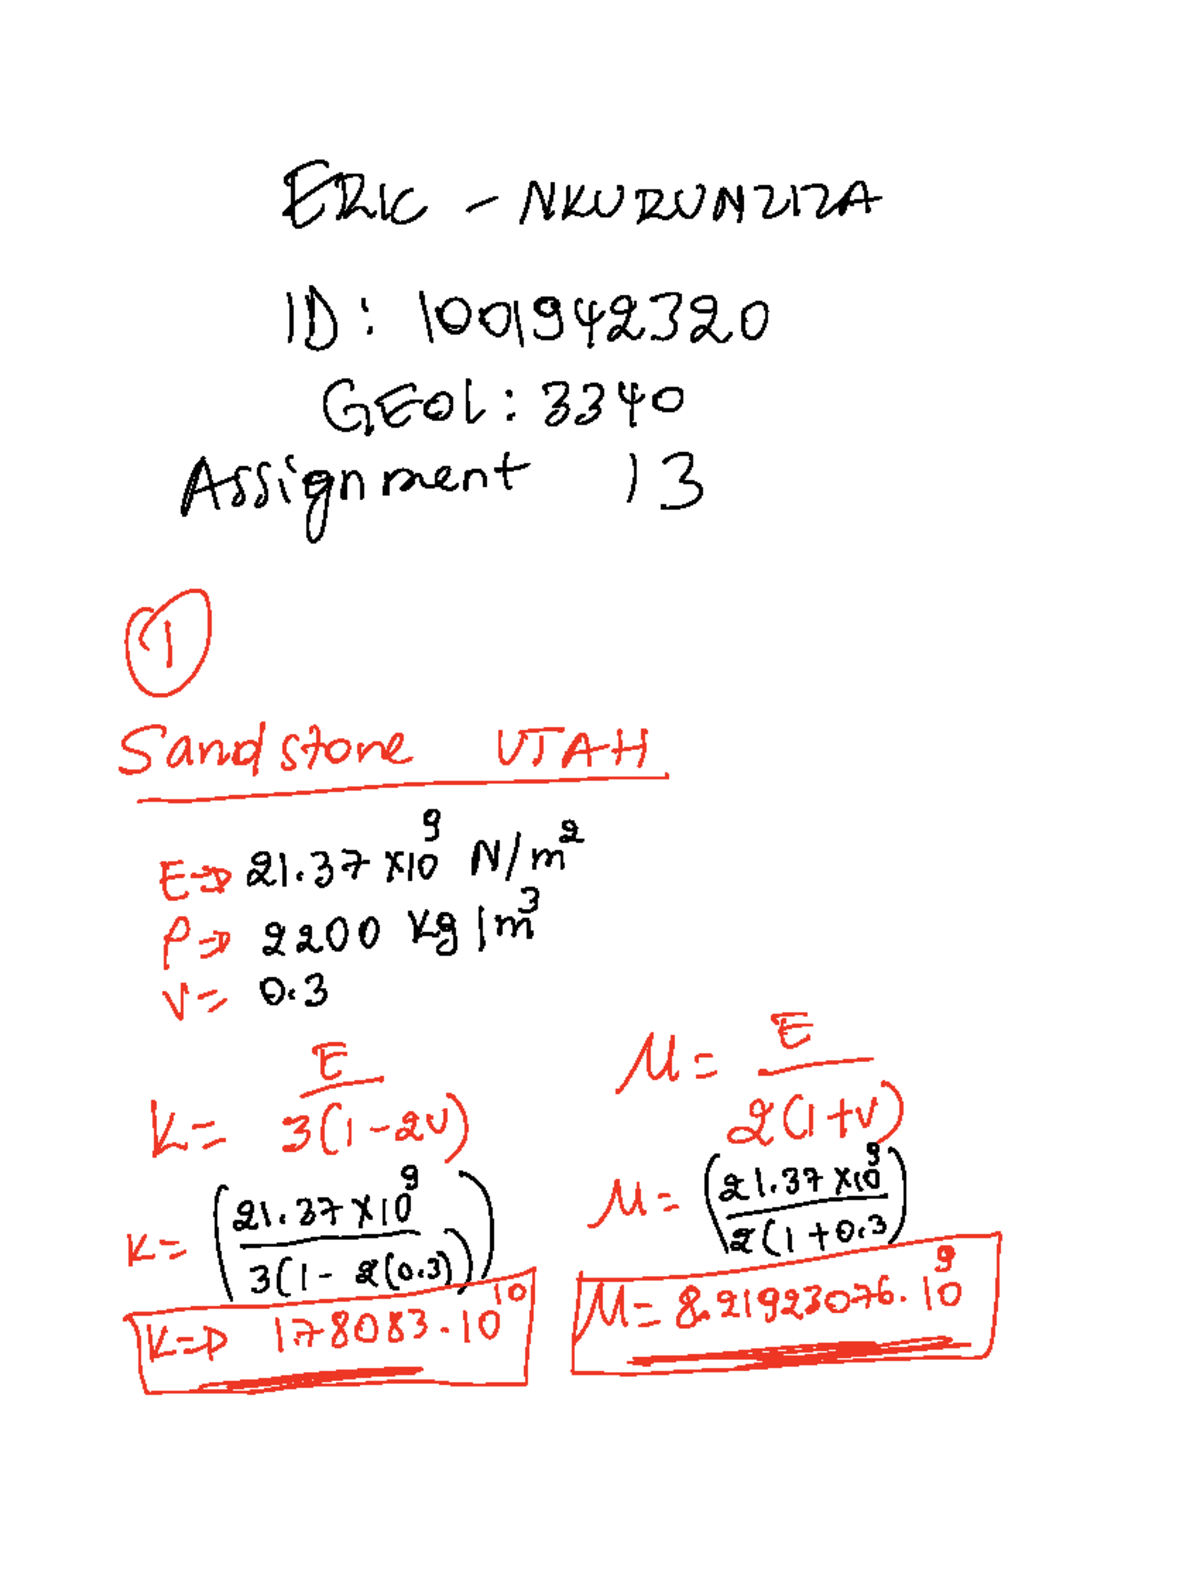 ERIC - NKURUNZIZA
ID: 1001942320
GEOL: 3340
Assignment 13
1
Sandstone UTAH
E⇒ 21.37 ×10⁹ N/m²
ρ⇒ 2200 kg/m³
ν= 0.3
K= E / 3(1-2ν)
μ= E / 2(1+ν)
K= (21.37 ×10⁹ / 3(1- 2(0.3)))
μ= (21.37 ×10⁹ / 2(1+0.3)
K⇒ 1.78083.10¹⁰
μ= 8.21923076.10⁹